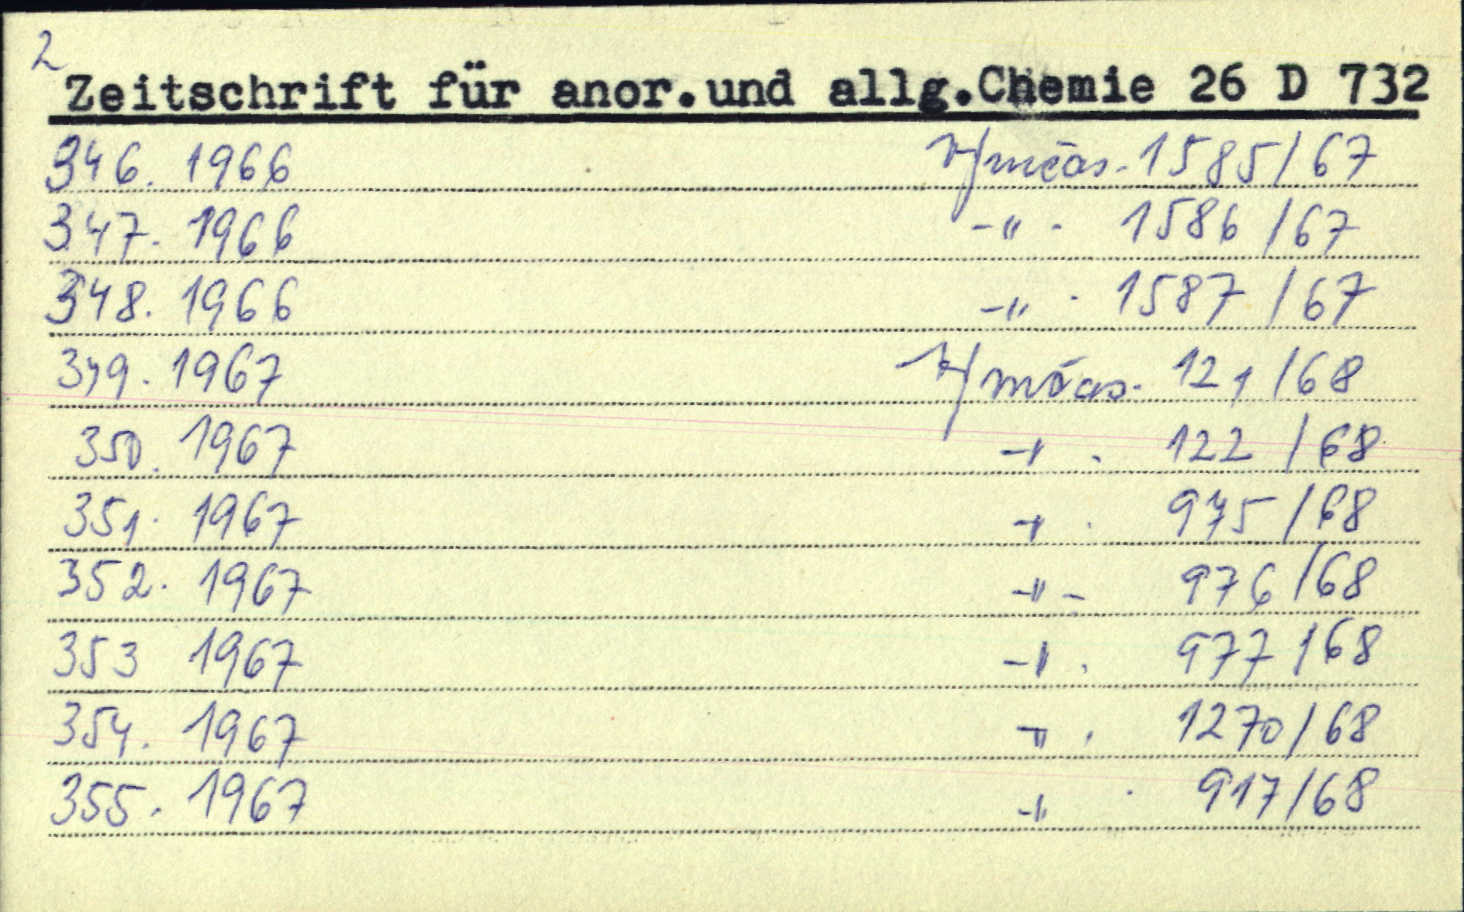 2
Zeitschrift für anor.und allg.Chemie 26 D 732
346. 1966 1585/67
347. 1966 -"- 1586/67
348. 1966 -"- 1587/67
349. 1967 121/68
350. 1967 -"- 122/68
351. 1967 -"- 975/68
352. 1967 -"- 976/68
353 1967 -"- 977/68
354. 1967 -"- 1270/68
355. 1967 -"- 917/68